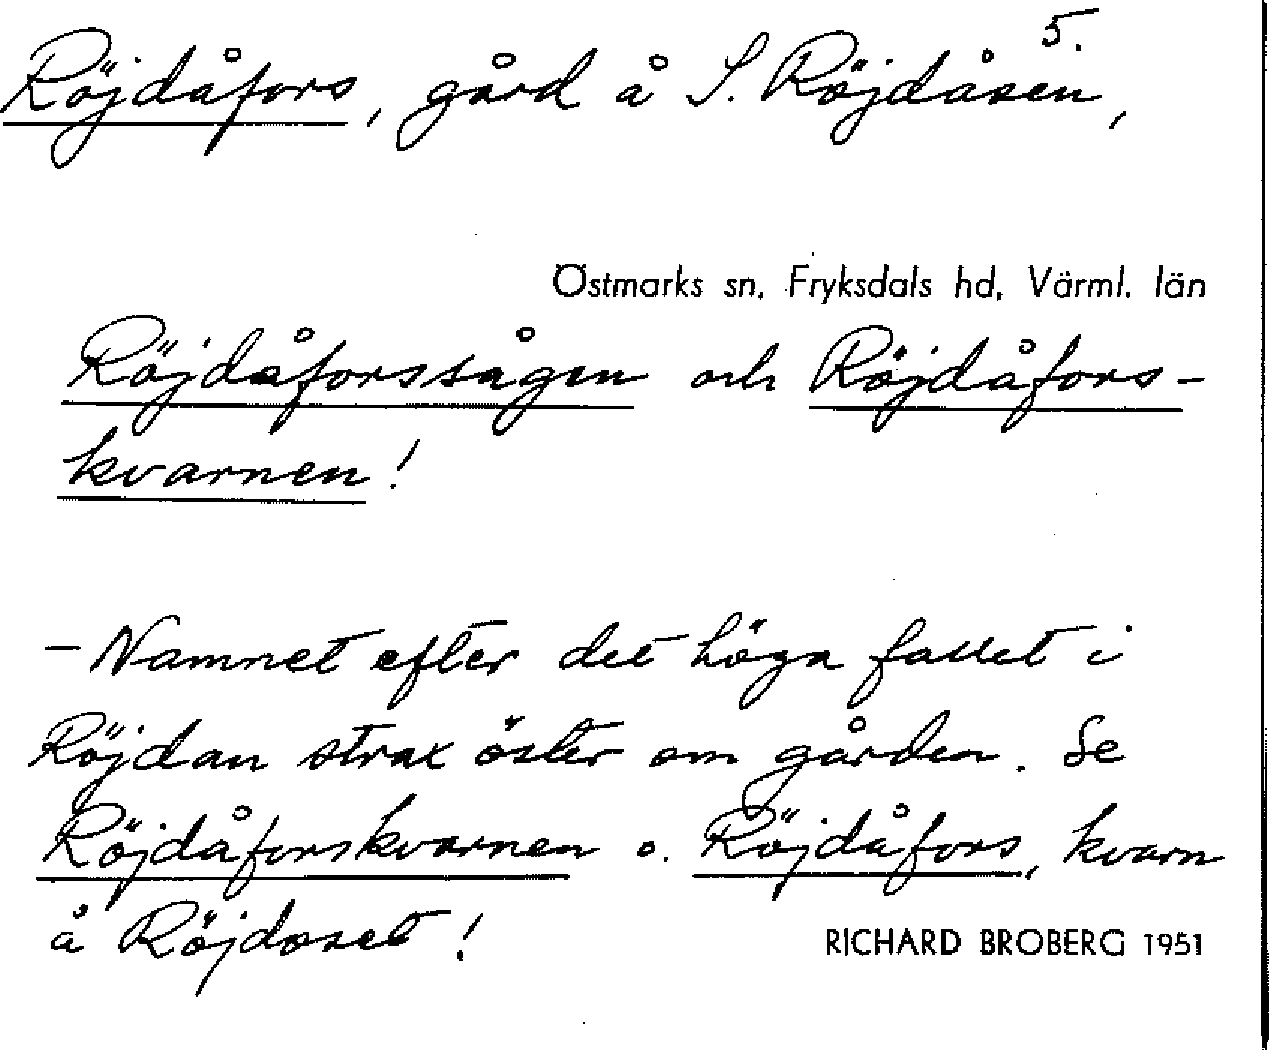 5.
Röjdåfors, gård å S. Röjdåsen,
Östmarks sn, Fryksdals hd, Värml. län
Röjdåforssågen och Röjdåfors-
kvarnen!
- Namnet efter det höga fallet i
Röjdan strax öster om gården. Se
Röjdåforskvarnen o. Röjdåfors, kvarn
å Röjdoset!
RICHARD BROBERG 1951